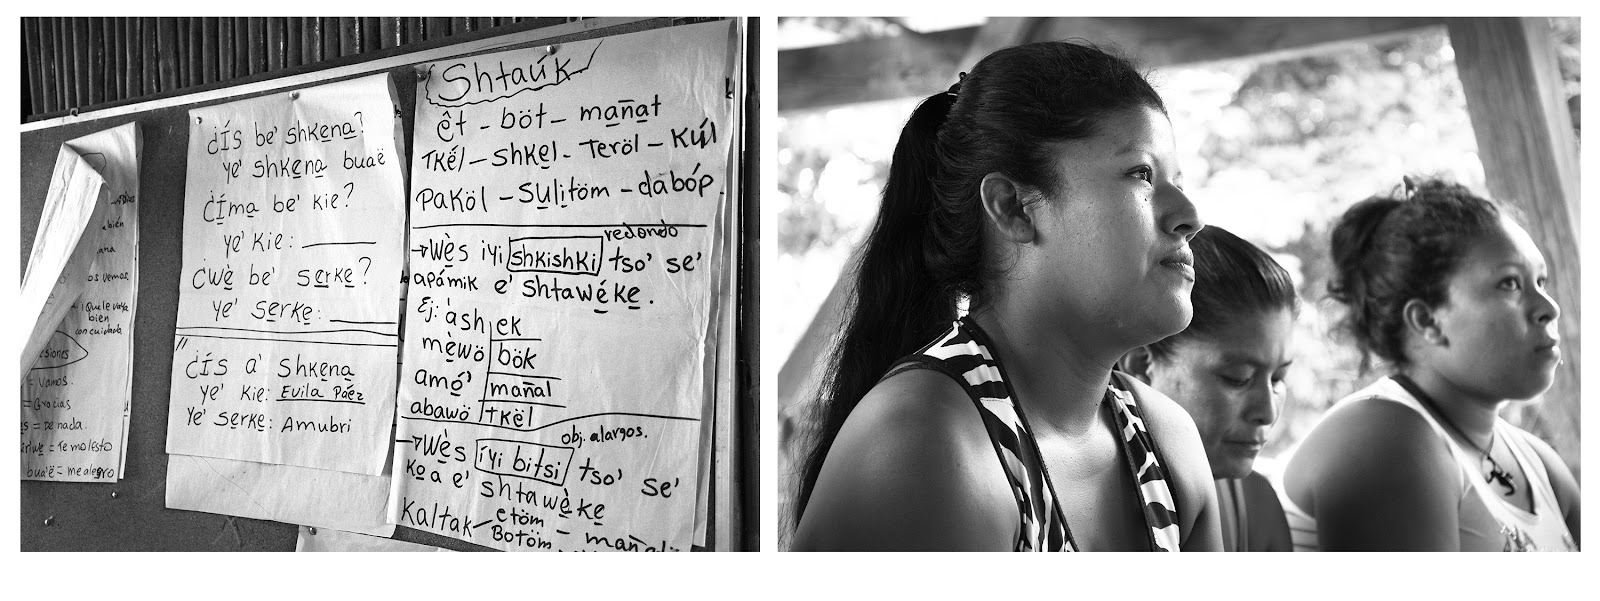 abién
os vemos
¡Que le vaya
bien
con cuidado
esiones
= Vamos.
= Gracias
= De nada.
= Te molesto
bua'ë = me alegro
¿Ís be' shke̱na̱?
ye' shke̱na̱ buaë
¿Ím̱a̱ be' kie?
ye' kie: ________
¿Wè̱ be' se̱rke̱?
ye' se̱rke̱: ________
¿Ís a' Shke̱na̱
ye' kie: Evila Páez
Ye' se̱rke̱: Amubri
Shtaúk
ê̱t - böt - ma̱ña̱t
Tkë́l - Shke̱l - Teröl - Kúl
Paköl - Su̱li̱töm - dabóp.
→ Wè̱s iyi shkishki tso' se'
redondo
apámik e' shtawé̱ke̱.
Ej: ásh ek
mè̱wö bök
amó̱' mañal
abawö tkël
→ Wè̱s íyi bitsi tso' se'
obj. alargos.
ko̱a e' shtawè̱ke̱
Kaltak - etöm - mañal
Botöm